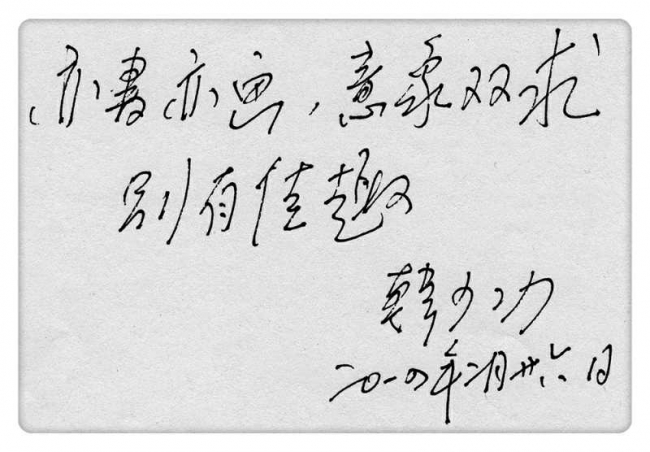 亦书亦画，意象双求
别有佳趣
韩少功
二〇一四年二月廿六日